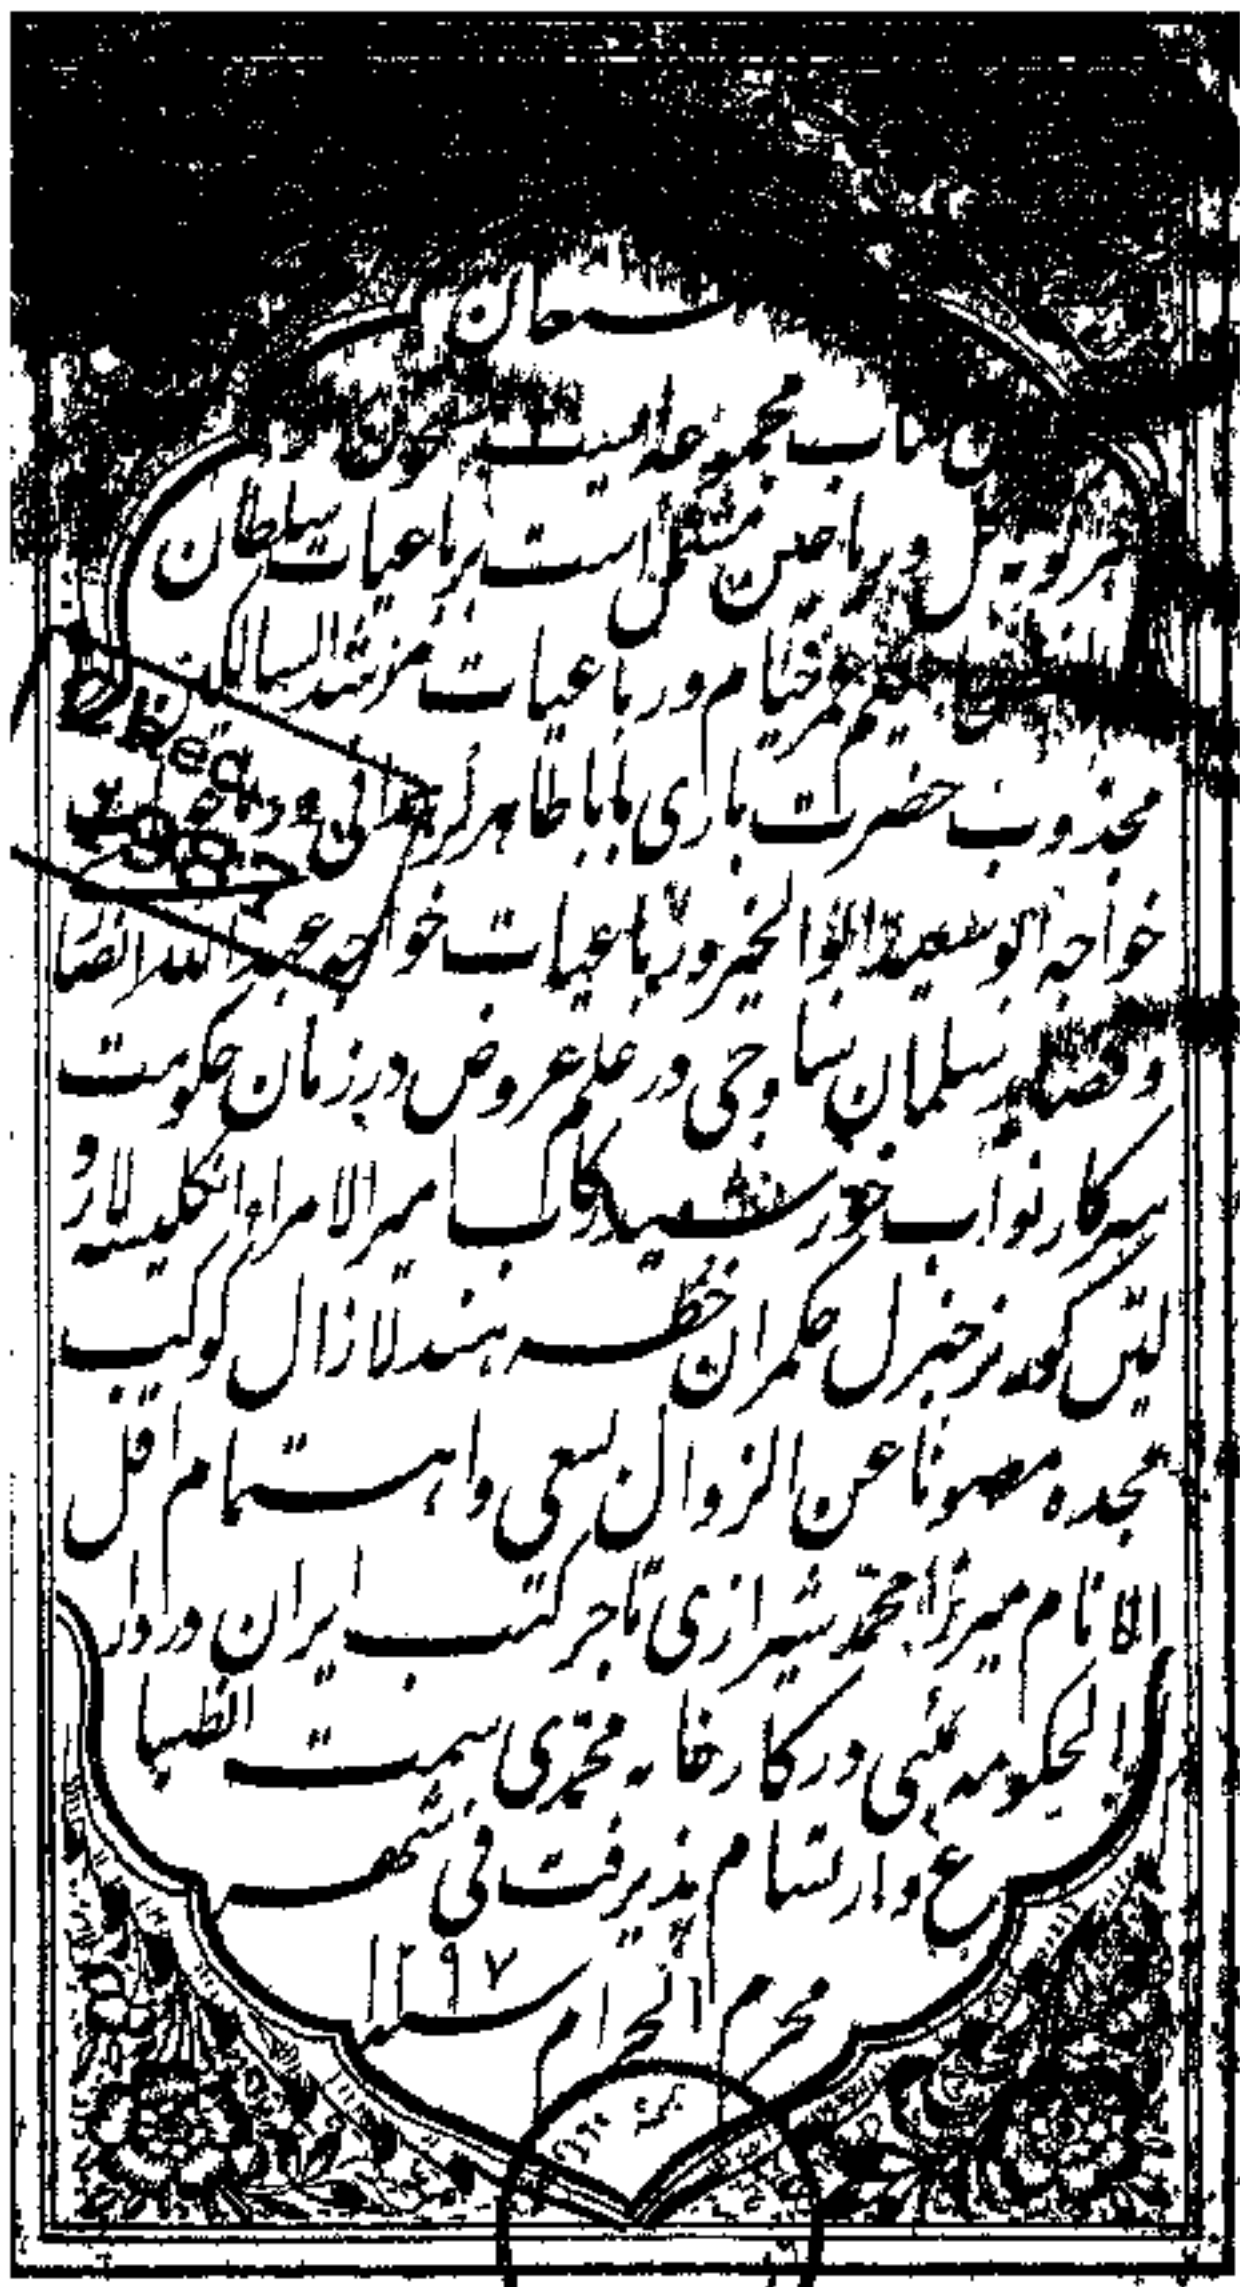 سبحان
کتاب مجموعه ایست مشحون
بر و ریاحین مشتمل است بر رباعیات سلطان
حکیم عمر خیام و رباعیات مرشد السالکان
مجذوب حضرت باری بابا طاهر همدانی و
خواجه ابو سعید ابو الخیر و رباعیات خواجه عبد الله انصار
و قصاید سلمان ساوجی در علم عروض در زمان حکومت
سرکار نواب خورشید رکاب امیر الامراء انکلیسیه لارد
لیتن گورنر جنرل حکمران خطه هند لا زال کوکب
مجده مصونا عن الزوال بسعی و اهتمام اقل
الانام میرزا محمد شیرازی تاجر کتب ایران در دار
الحکومه بمبئی در کارخانه محمدی سمت انطبا
ع و ارتسام پذیرفت فی شهر
محرم الحرام سنه ۱۲۹۷
Checked
1987